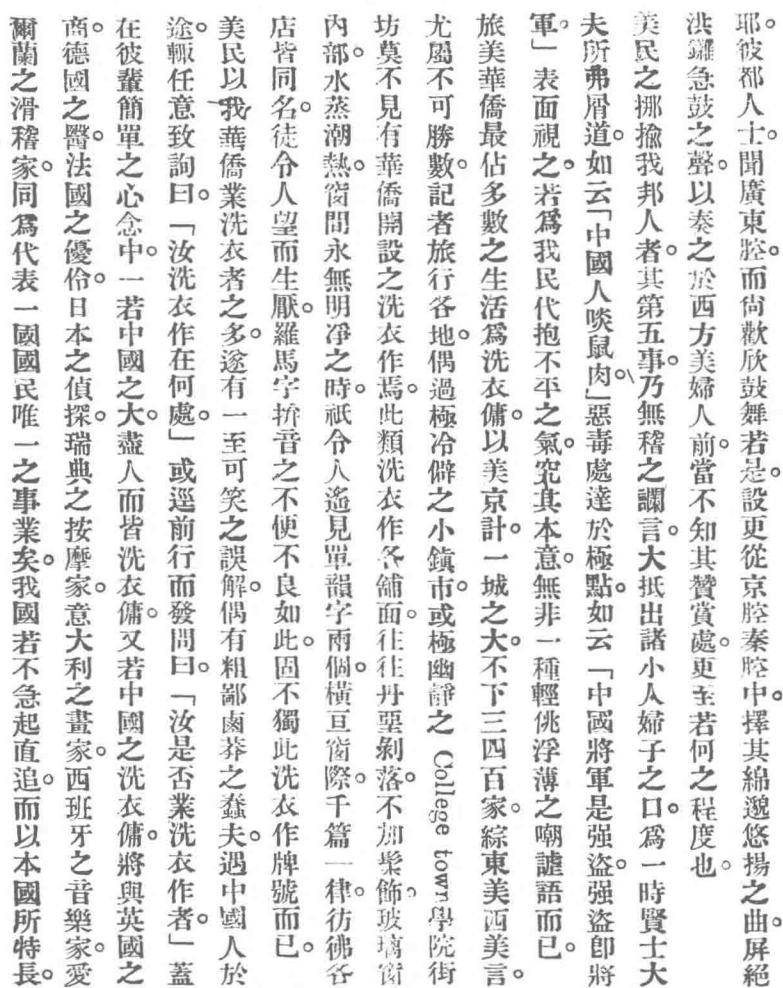 耶。彼都人士。聞廣東腔。而尙歡欣鼓舞若是。設更從京腔秦腔中。擇其綿邈悠揚之曲。屏絕
洪鑼急鼓之聲。以奏之於西方美婦人前。當不知其贊賞處。更至若何之程度也。
美民之揶揄我邦人者。其第五事。乃無稽之讕言。大抵出諸小人婦子之口。爲一時賢士大
夫所弗屑道。如云「中國人啖鼠肉」惡毒處達於極點。如云「中國將軍是强盜。强盜卽將
軍。」表面視之。若爲我民代抱不平之氣。究其本意。無非一種輕佻浮薄之嘲謔語而已。
旅美華僑最佔多數之生活爲洗衣傭。以美京計。一城之大。不下三四百家。綜東美西美言。
尤屬不可勝數。記者旅行各地。偶過極冷僻之小鎭市。或極幽靜之 College town 學院街
坊莫不見有華僑開設之洗衣作焉。此類洗衣作各舖面。往往丹堊剝落。不加髹飾。玻璃窗
內部。水蒸潮熱。窗間永無明凈之時。祇令人遙見單韻字兩個。橫亘窗際。千篇一律。彷彿各
店皆同名。徒令人望而生厭。羅馬字拚音之不便不良如此。固不獨此洗衣作牌號而已。
美民以我華僑業洗衣者之多。遂有一至可笑之誤解。偶有粗鄙鹵莽之蠢夫。遇中國人於
途。輒任意致詢曰。「汝洗衣作在何處。」或逕前行而發問曰。「汝是否業洗衣作者。」蓋
在彼輩簡單之心念中。一若中國之大。盡人而皆洗衣傭。又若中國之洗衣傭。將與英國之
商。德國之醫。法國之優伶。日本之偵探。瑞典之按摩家。意大利之畫家。西班牙之音樂家。愛
爾蘭之滑稽家。同爲代表一國國民唯一之事業矣。我國若不急起直追。而以本國所特長。